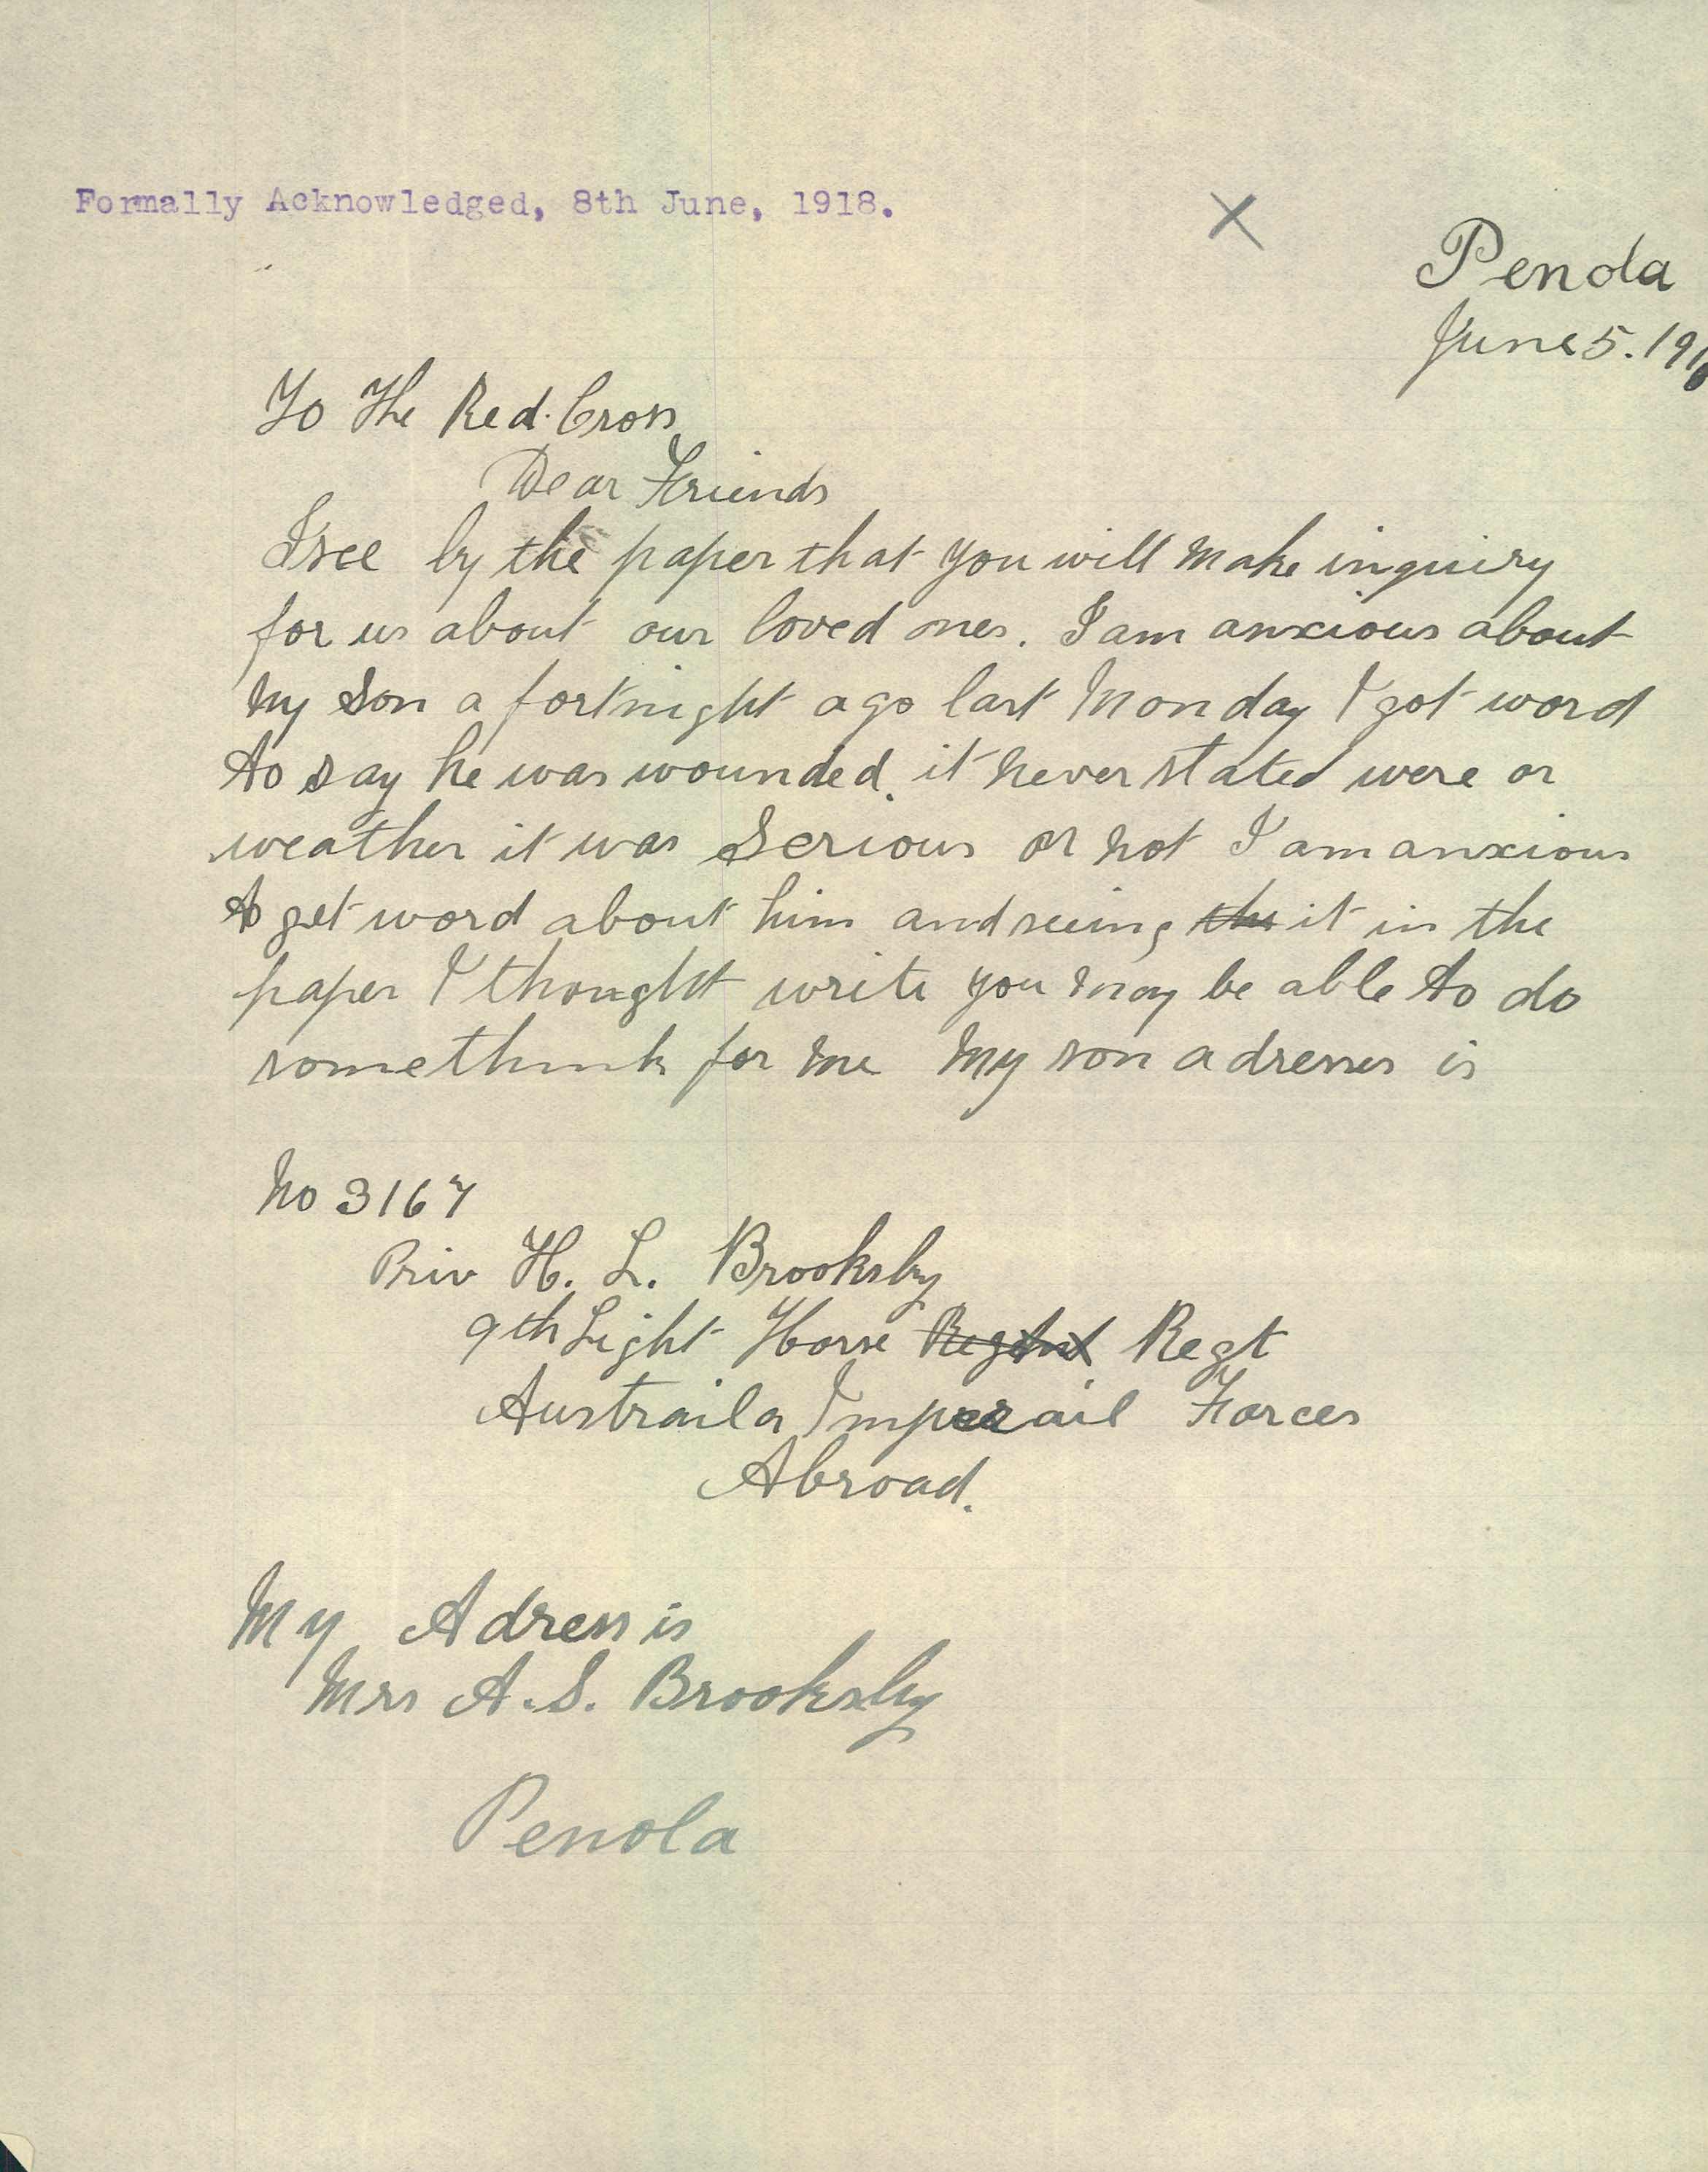 Formally Acknowledged, 8th June, 1918.
X
Penola
June 5. 1918
To The Red. Cross
Dear Friends
I see by the paper that you will make inquiry
for us about our loved ones. I am anxious about
my son a fortnight ago last Monday I got word
to say he was wounded. it never stated were or
weather it was Serious or not I am anxious
to get word about him and seeing the it in the
paper I thought write you may be able to do
somethink for me my son adresses is
No 3167
Priv H. L. Brooksby
9th Light Horse Regt
Austraila Imperail Forces
Abroad.
My Adress is
Mrs A. S. Brooksby
Penola